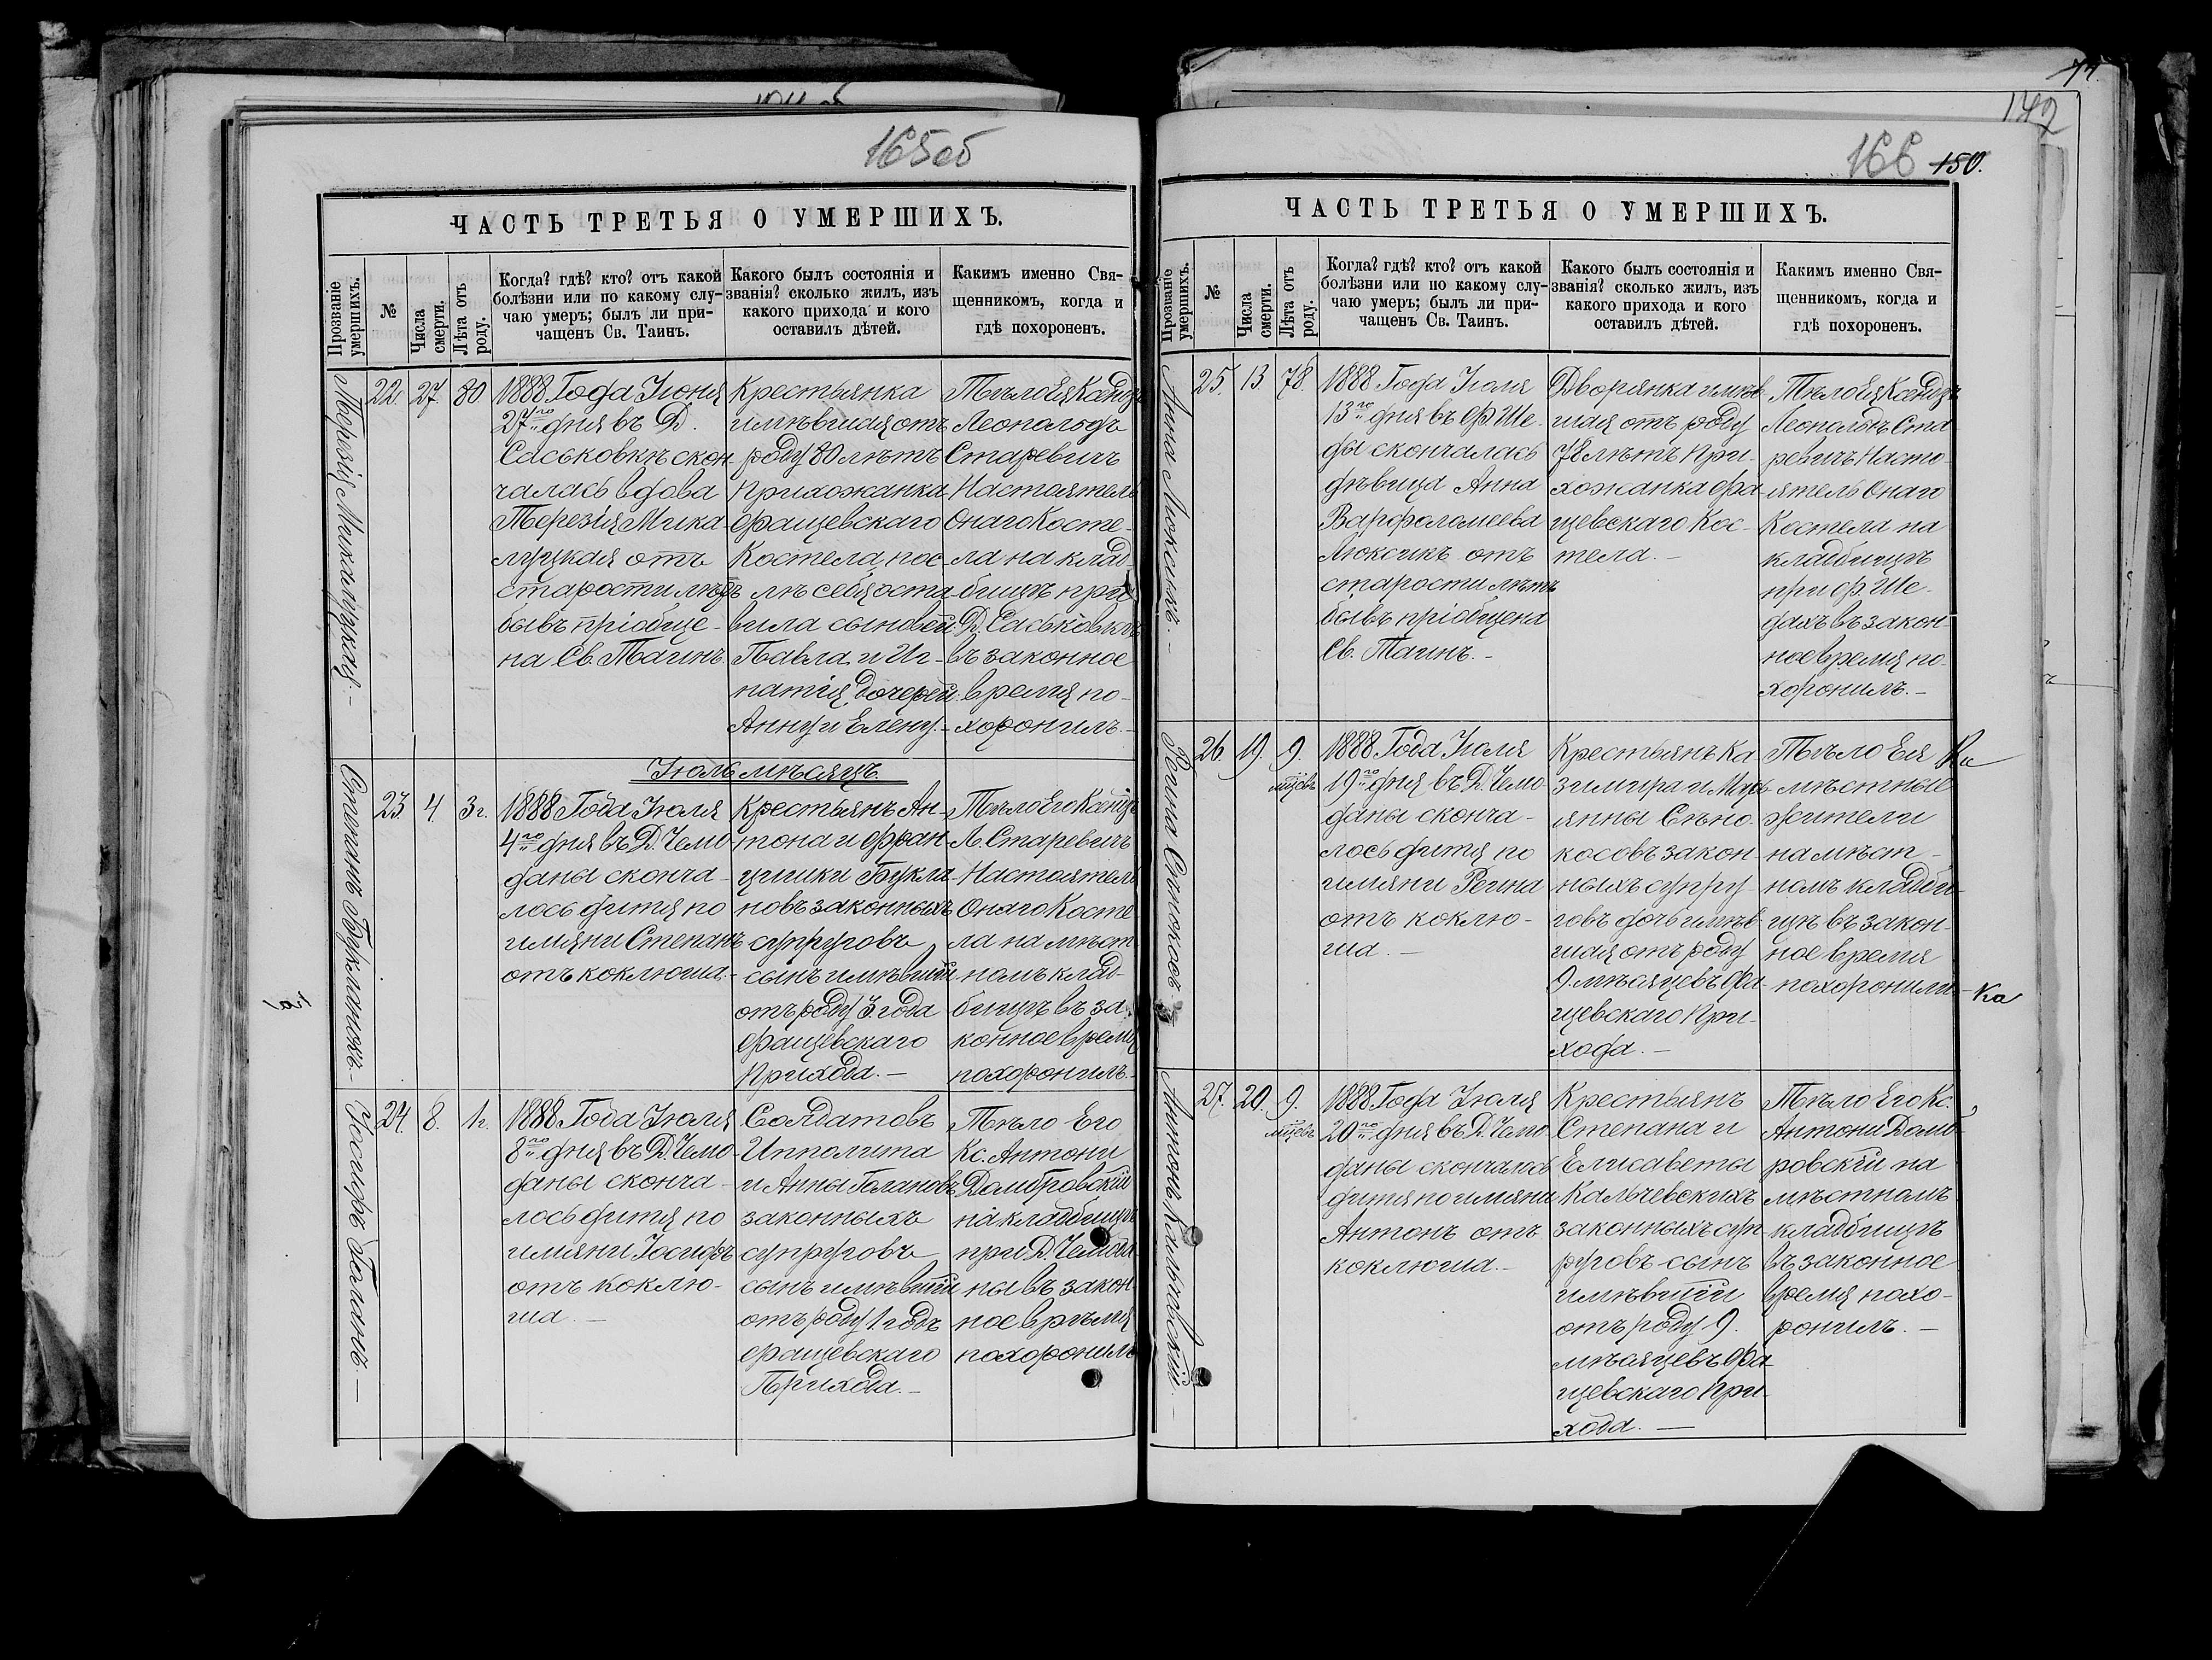 165об
ЧАСТЬ ТРЕТЬЯ О УМЕРШИХЪ.
Прозваніе умершихъ.
№
Числа смерти.
Лѣта отъ роду.
Когда? гдѣ? кто? отъ какой
болѣзни или по какому слу-
чаю умеръ; былъ ли при-
чащенъ Св. Таинъ.
Какого былъ состоянія и
званія? сколько жилъ, изъ
какого прихода и кого
оставилъ дѣтей.
Какимъ именно Свя-
щенникомъ, когда и
гдѣ похороненъ.
Терезія Микалуцкая.-
22.
27.
80
1888 Года Іюня
27го дня въ Д.
Саськовкѣ скон-
чалась вдова
Терезія Мика-
луцкая отъ
старости лѣтъ
бывъ пріобще-
на Св. Таинъ.
Крестьянка
имѣвшая отъ
роду 80 лѣтъ
Прихожанка
Фащевскаго
Костела, пос-
лѣ себя оста-
вила сыновей:
Павла и Иг-
натія, дочерей:
Анну и Елену.-
Тѣло Ея Ксндзъ
Леопольдъ
Старевичъ
Настоятель
Онаго Косте-
ла на клад-
бищѣ при
Д. Саськовкѣ
въ законное
время по-
хоронилъ.-
Іюль мѣсяцъ
Степанъ Букланокъ.-
23.
4.
3 г.
1888 Года Іюля
4го дня въ Д. Чемо-
даны сконча-
лось дитя по
имяни Степанъ
отъ коклюша.-
Крестьянъ Ан-
тона и Фран-
цишки Букла-
новъ законныхъ
супруговъ,
сынъ имѣвшій
отъ роду 3 года
Фащевскаго
Прихода.-
Тѣло Его Ксндзъ
Л. Старевичъ
Настоятель
Онаго Косте-
ла на мѣст-
номъ клад-
бищѣ въ за-
конное время
похоронилъ.-
Іосифъ Галанъ.-
24.
8.
1 г.
1888 Года Іюля
8го дня въ Д. Чемо-
даны сконча-
лось дитя по
имяни Іосифъ
отъ коклю-
ша.-
Солдатовъ
Ипполита
и Анны Галановъ
законныхъ
супруговъ
сынъ имѣвшій
отъ роду 1 годъ
Фащевскаго
Прихода.-
Тѣло Его
Кс. Антони
Домбровскій
на кладбищѣ
при Д. Чемода-
ны въ закон-
ное врѣмя
похоронилъ
166 150.
ЧАСТЬ ТРЕТЬЯ О УМЕРШИХЪ.
Прозваніе умершихъ.
№
Числа смерти.
Лѣта отъ роду.
Когда? гдѣ? кто? отъ какой
болѣзни или по какому слу-
чаю умеръ; былъ ли при-
чащенъ Св. Таинъ.
Какого былъ состоянія и
званія? сколько жилъ, изъ
какого прихода и кого
оставилъ дѣтей.
Какимъ именно Свя-
щенникомъ, когда и
гдѣ похороненъ.
Анна Люксикъ.-
25.
13
78.
1888 Года Іюля
13го дня въ Ф. Ше-
ды скончалась
дѣвица Анна
Варфоломеева
Люксикъ отъ
старости лѣтъ
бывъ пріобщена
Св. Таинъ.-
Дворянка имѣв-
шая отъ роду
78 лѣтъ При-
хожанка Фа-
щевскаго Кос-
тела.-
Тѣло Ея Ксндзъ
Леопольдъ Ста-
ревичъ Насто-
ятель Онаго
Костела на
кладбищѣ
при Ф. Ше-
дахъ въ закон-
ное время по-
хоронилъ.-
Регина Сѣнокосъ
26.
19.
9.
мцевъ
1888 Года Іюля
19го дня въ Д. Чемо-
даны сконча-
лось дитя по
имяни Регина
отъ коклю-
ша.-
Крестьянъ Ка-
зимира и Марь-
янны Сѣно-
косовъ закон-
ныхъ супру-
говъ дочь имѣв-
шая отъ роду
9. мѣсяцевъ Фа-
щевскаго При-
хода.-
Тѣло Ея
мѣстные
жители
на мѣст-
номъ кладби-
щѣ въ закон-
ное время
похоронили.-
Ка
Антонъ Кальчевскій.-
27.
20.
9.
мцевъ
1888 Года Іюля
20го дня въ Д. Чемо-
даны скончалось
дитя по имяни
Антонъ отъ
коклюша.-
Крестьянъ
Степана и
Елисаветы
Кальчевскихъ
законныхъ суп-
руговъ сынъ
имѣвшій
отъ роду 9.
мѣсяцевъ Фа-
щевскаго При-
хода.-
Тѣло Его Кс.
Антони Домб-
ровскій на
мѣстномъ
кладбищѣ
въ законное
время похо-
ронилъ.-